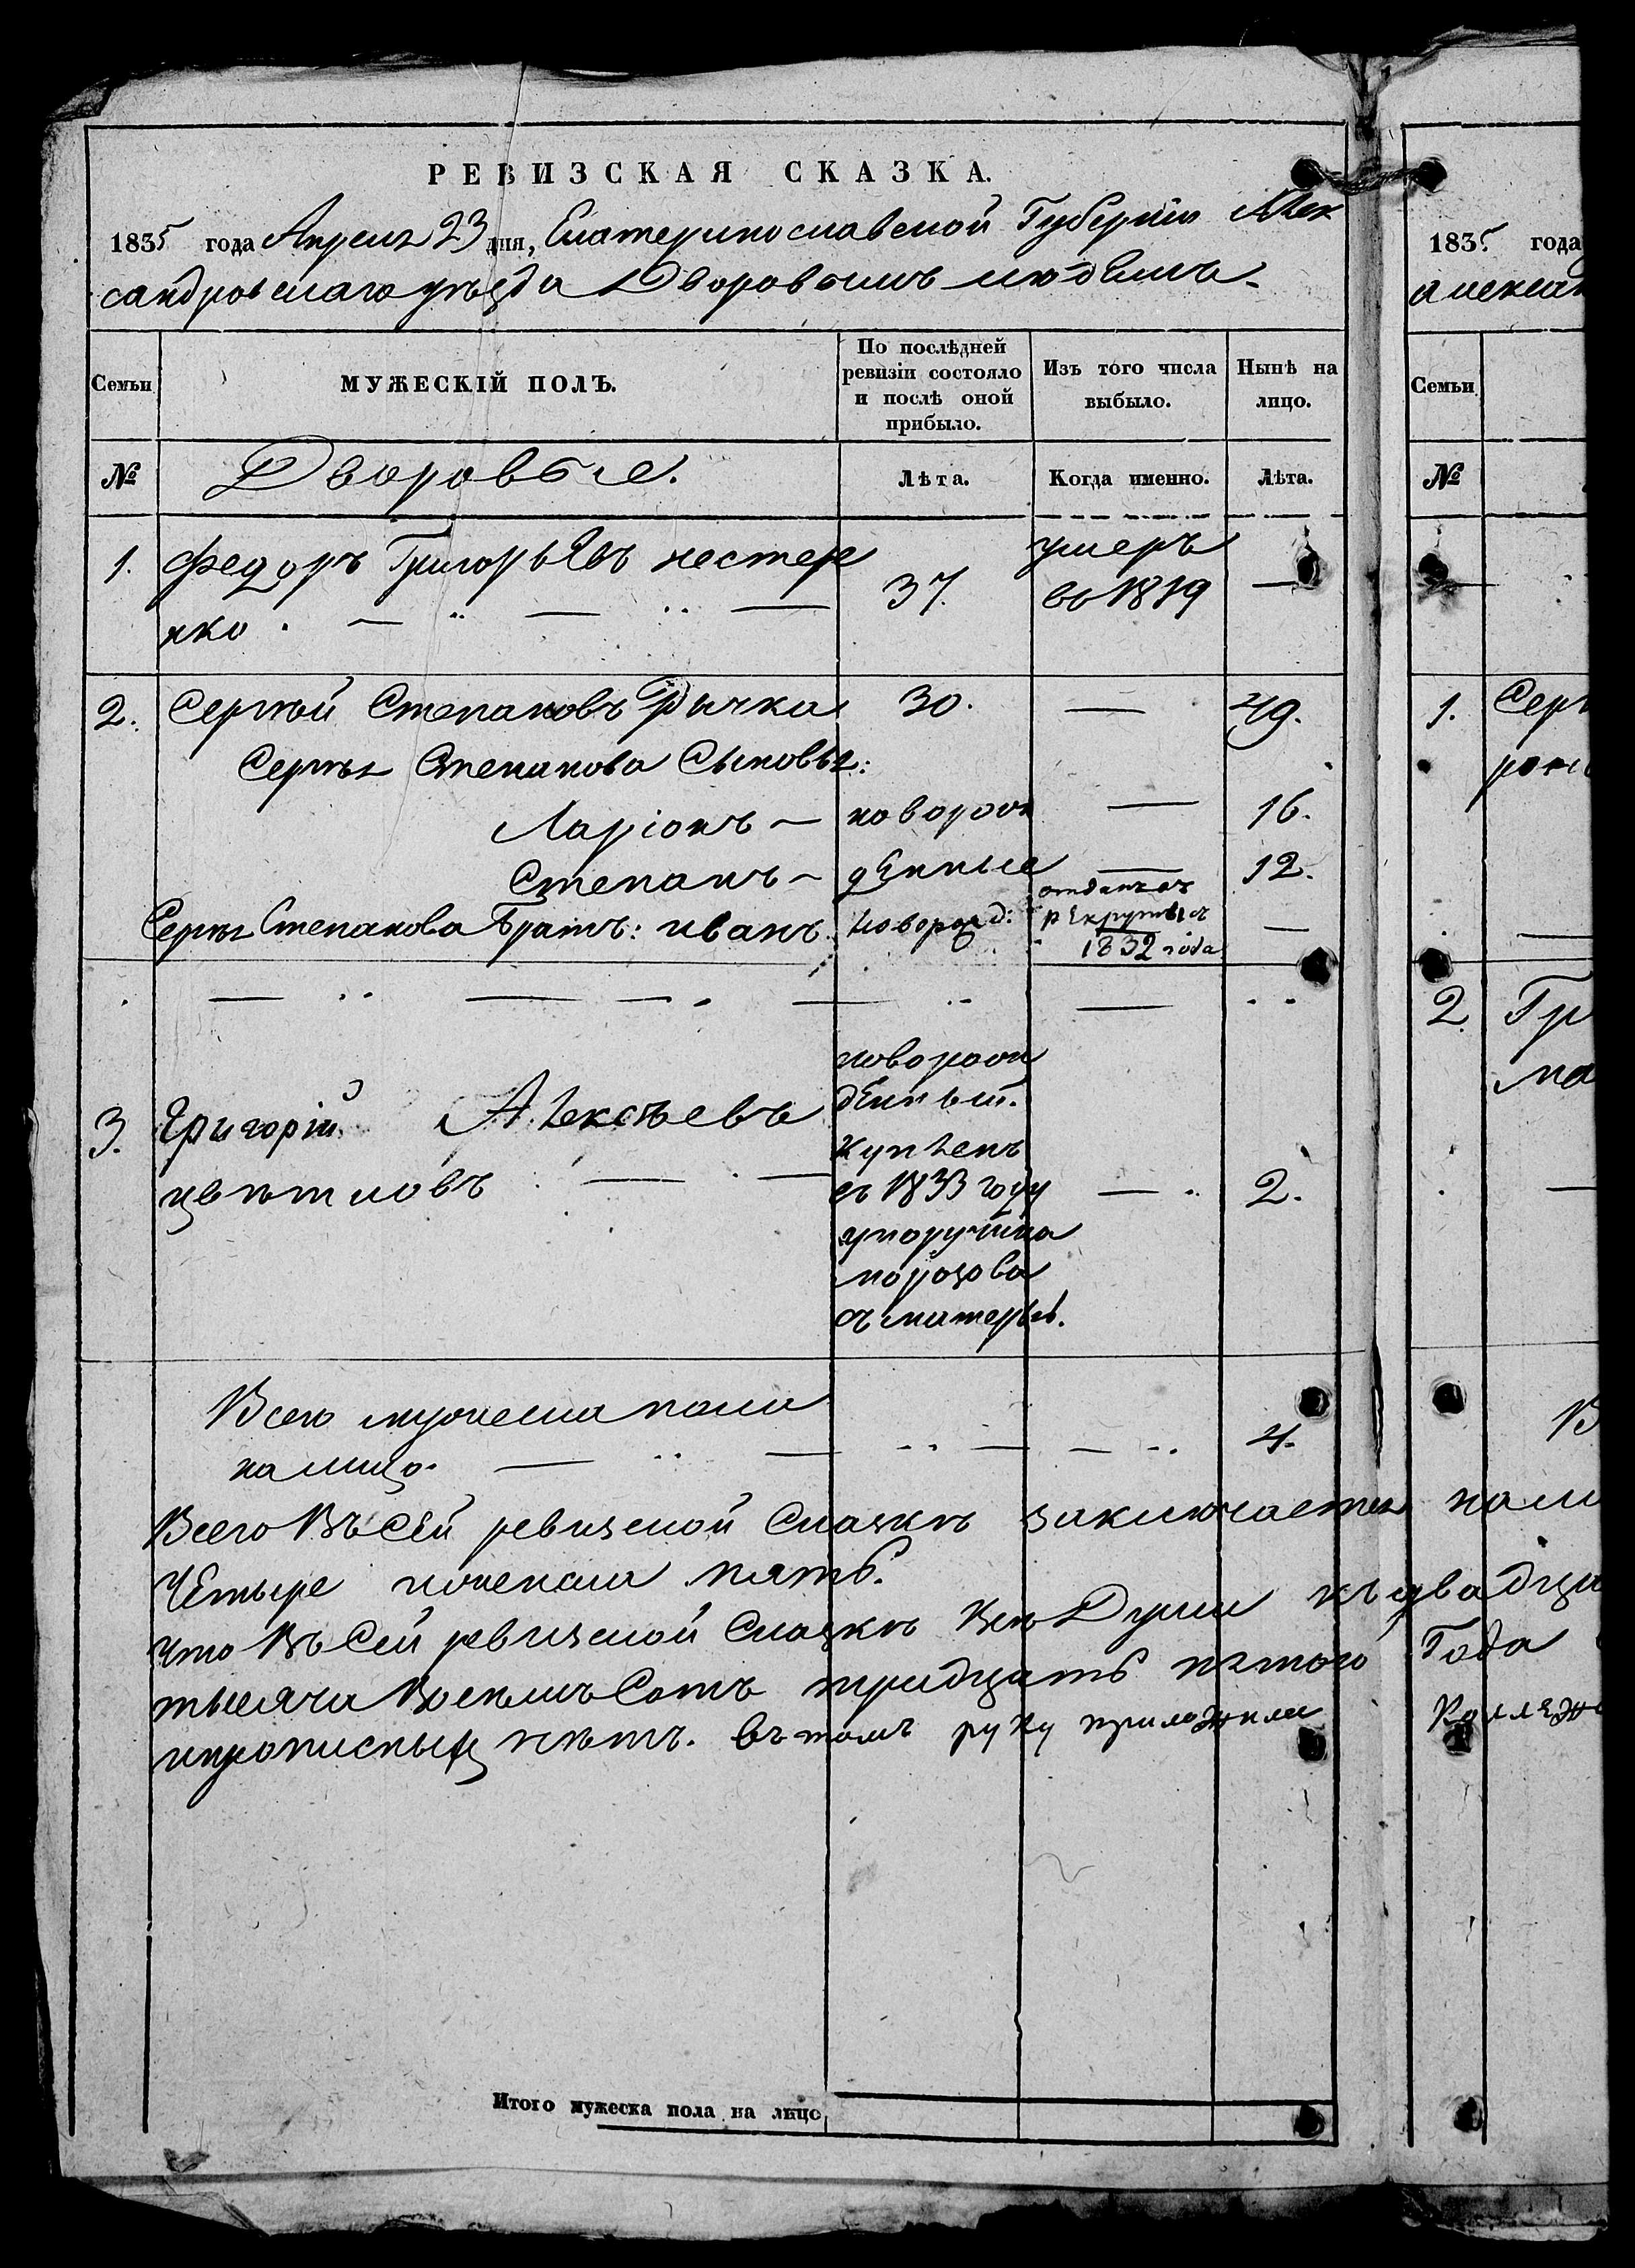 РЕВИЗСКАЯ СКАЗКА.
1835 года Апреля 23 дня, Екатеринославской Губернiи Алек
сандровскаго уѣзда Дворовымъ людемъ
Семьи
МУЖЕСКІЙ ПОЛЪ.
По послѣдней ревизіи состояло и послѣ оной прибыло.
Изъ того числа выбыло.
Нынѣ на лицо.
№
Дворовые.
Лѣта.
Когда именно.
Лѣта.
1. Федоръ Григорьевъ нестере
нко
37.
умеръ
во 1819
2. Сергѣй Степановъ Рычка 30. — 49.
Сергѣя Степанова Сыновья:
Ларіонъ — новорож — 16.
Степанъ — денные — 12.
Сергѣя Степанова Братъ: иванъ. новорожд: отданъ въ рекруты въ 1832 года —
3. Григорій Алексѣевъ
цвѣтковъ
новорож
денный.
купленъ
въ 1833 году
упоручика
морозова
съ матерью.
2.
Всего мужеска пола
налицо. 4.
Всего Въ Сей ревизской Сказкѣ заключается нали
Четыре иженска пять.
что Въ Сей ревизской Сказкѣ Всѣ Души къ двадца
тысяча Восемъ Сотъ тридцать пятого Года
ипрописныхъ нѣтъ. въ томъ руку приложили Коллеж
Итого мужеска пола на лицо
1835 года
алексан
Семьи
№
1. Серг
2. Гр
ма
В